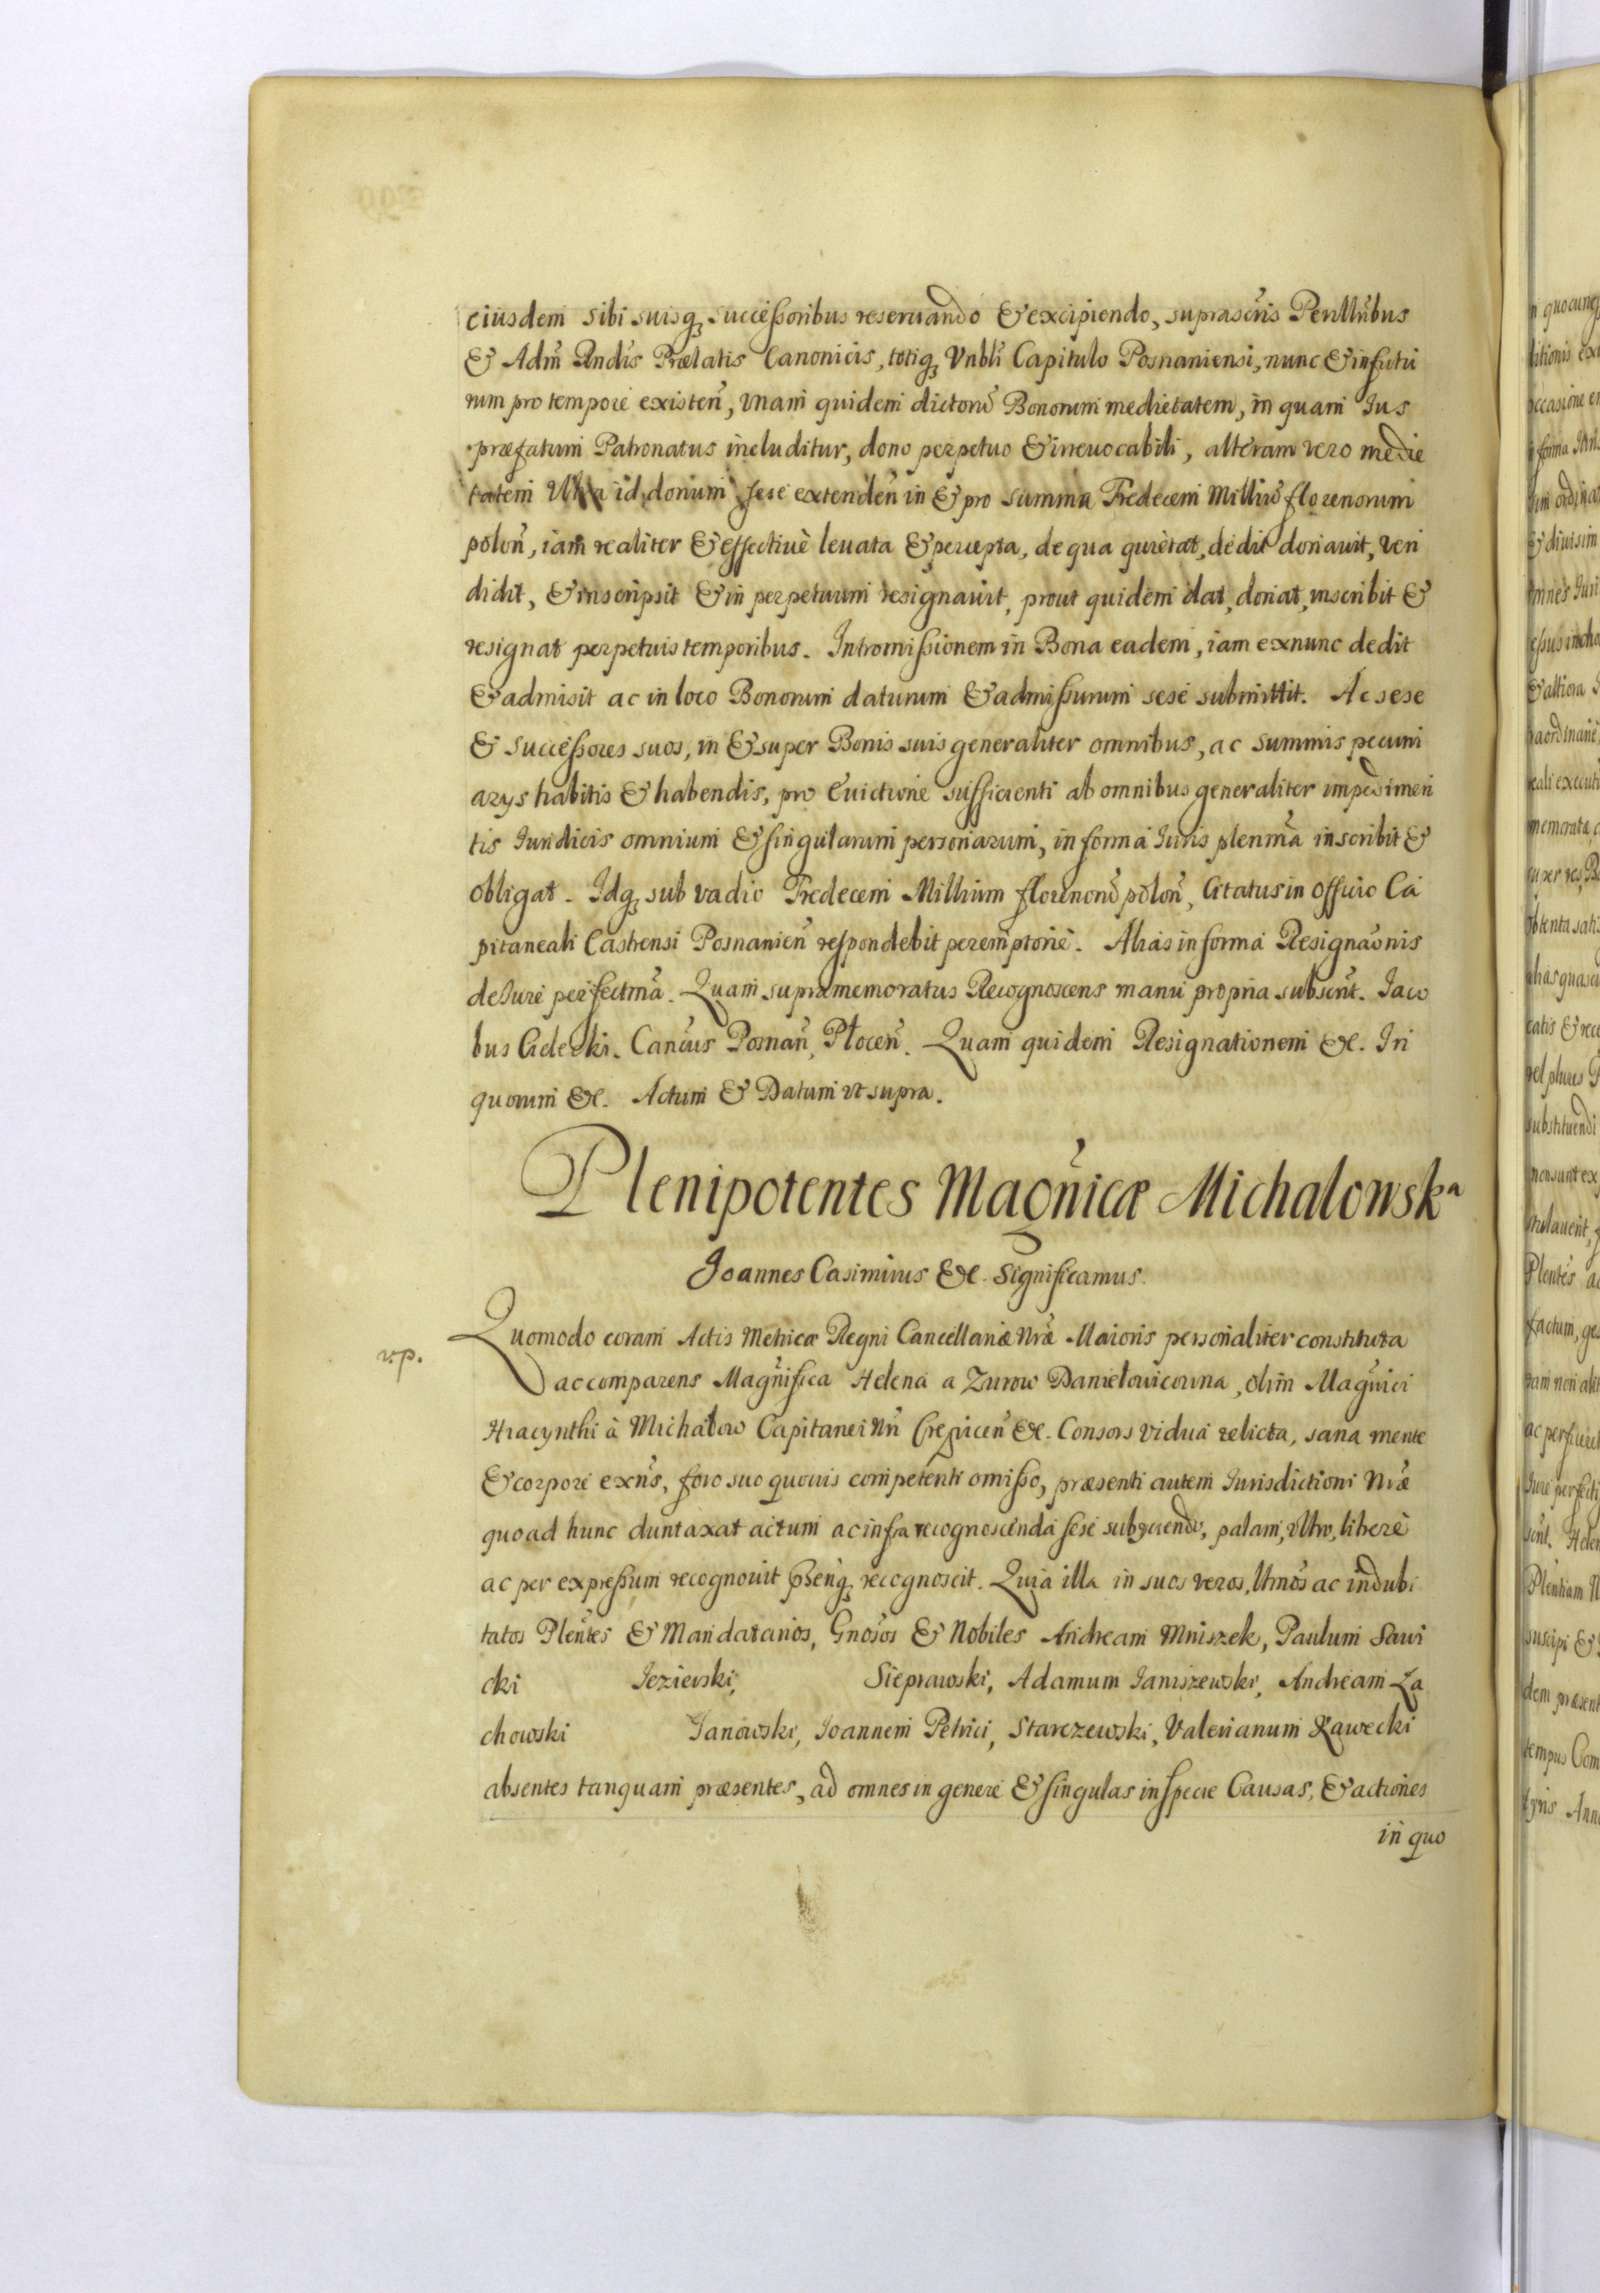 eiusdem sibi suisq3 successoribus reseruando & excipiendo, suprascris Perillubus
& Adm Rndis Prælatis Canonicis, totiq3 Vnbli Capitulo Posnaniensi, nunc & in futu
rum pro tempore existen, vnam quidem dictoru Bonorum medietatem, in quam Jus
præfatum Patronatus includitur, dono perpetuo & irreuocabili, alteram vero medie
tatem id donum sese extenden in & pro summa Tredecem Milliu florenorum
polon, iam realiter & effectiuè leuata & percepta, de qua quietat, dedit donauit, ven
didit, & inscripsit & in perpetuum resignauit, prout quidem dat, donat, inscribit &
resignat perpetuis temporibus. Intromissionem in Bona eadem, iam exnunc dedit
& admisit ac in loco Bonorum daturum & admissurum sese submittit. Ac sese
& successores suos, in & super Bonis suis generaliter omnibus, ac summis pecuni
arys habitis & habendis, pro Euictione sufficienti ab omnibus generaliter impedimen
tis Iuridicis omnium & singularum personarum, in forma Iuris plenma inscribit &
obligat. Idq3 sub vadio Tredecem Millium florenoru polon, Citatus in Officio Ca
pitaneali Castrensi Posnanien respondebit peremptorie. Alias in forma Resignaonis
de Iure perfectma. Quam supramemoratus Recognoscens manu propria subscrit. Jaco
bus Gielecki. Cancus Posnan, Plocen. Quam quidem Resignationem &c. In
quorum &c. Actum & Datum vt supra.
Plenipotentes Magnicæ Michalowska
Joannes Casimirus &c. Significamus.
Quomodo coram Actis Metricæ Regni Cancellariæ Nræ Maioris personaliter constituta
vp.
ac comparens Magnifica Helena a Zurow Danielowicowna, olim Magnici
Hiacynthi à Michalow Capitanei Nri Crepicen &c. Consors vidua relicta, sana mente
& corpore exns, foro suo quouis competenti omisso, præsenti autem Iurisdictioni Nræ
quoad hunc duntaxat actum ac infra recognoscenda sese subyciendo, palam, vltro, liberè
ac per expressum recognouit pntiq3 recognoscit. Quia illa in suos veros, ltmos ac indubi
tatos Plentes & Mandatarios, Gnosos & Nobiles Andream Mniszek, Paulum Sawi
cki Jezierski, Sieprawski, Adamum Janiszewski, Andream La
chowski Janowski, Joannem Petrici, Starczewski, Valerianum Kawecki
absentes tanquam præsentes, ad omnes in genere & singulas in specie Causas, & actiones
in quo